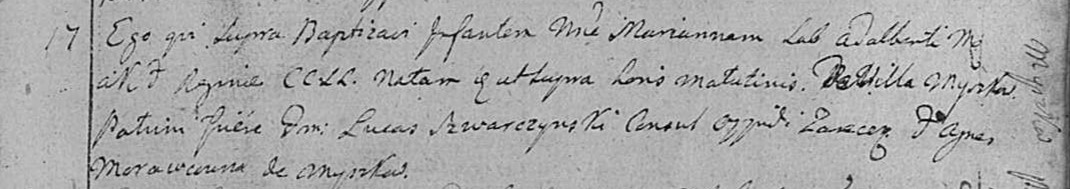 17 Ego qui supra Baptizavi Infantem Nne Mariannam Lab Adalberti M
et Reginæ CCLL. Natam ut supra horis matutinis. De Villa Myszka.
Patrini fuere Dni Lucas Szwarczynski Consul oppidi et Agnes
Morawcowna de Myszka.